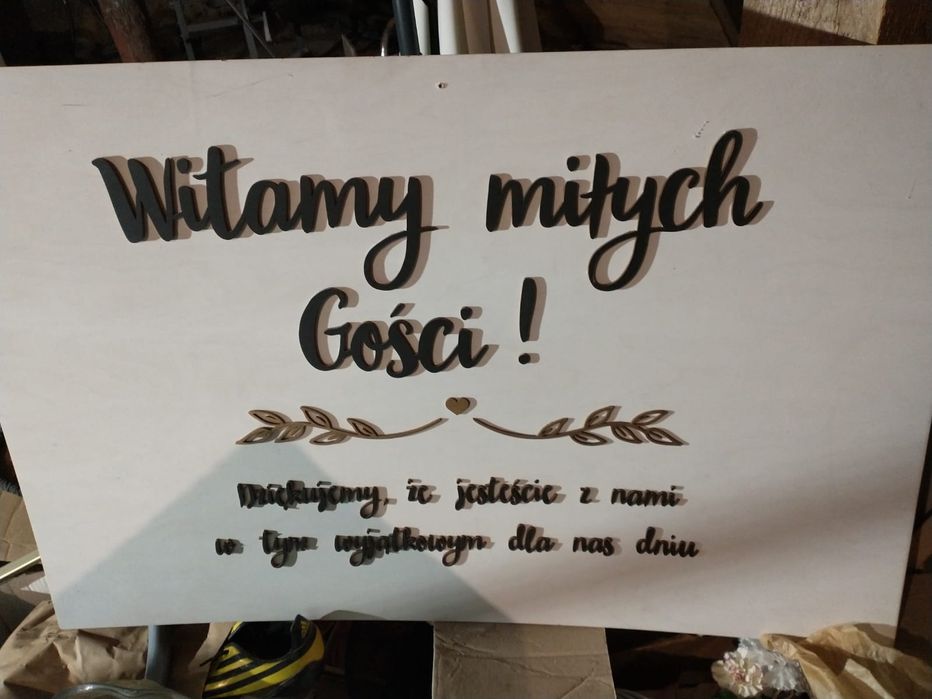 Witamy miłych
Gości !
Dziękujemy, że jesteście z nami
w tym wyjątkowym dla nas dniu